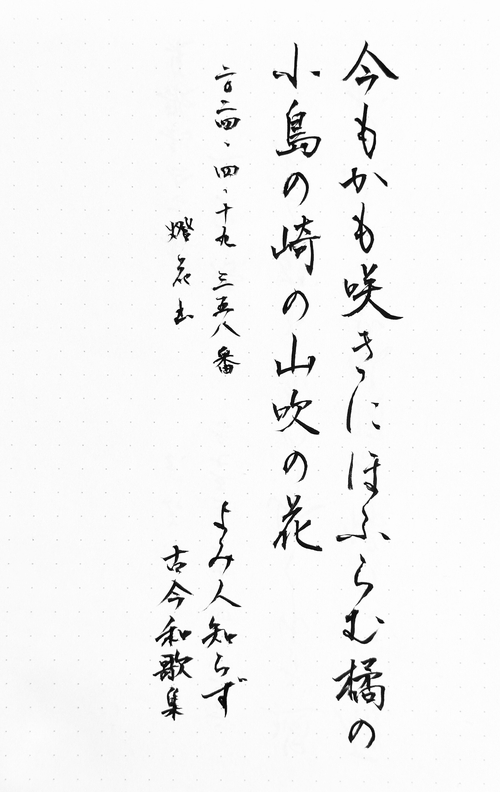 今もかも咲きにほふらむ橘の
小島の崎の山吹の花
よみ人知らず
古今和歌集
二〇二四、四、十九 三五八番
燈花出